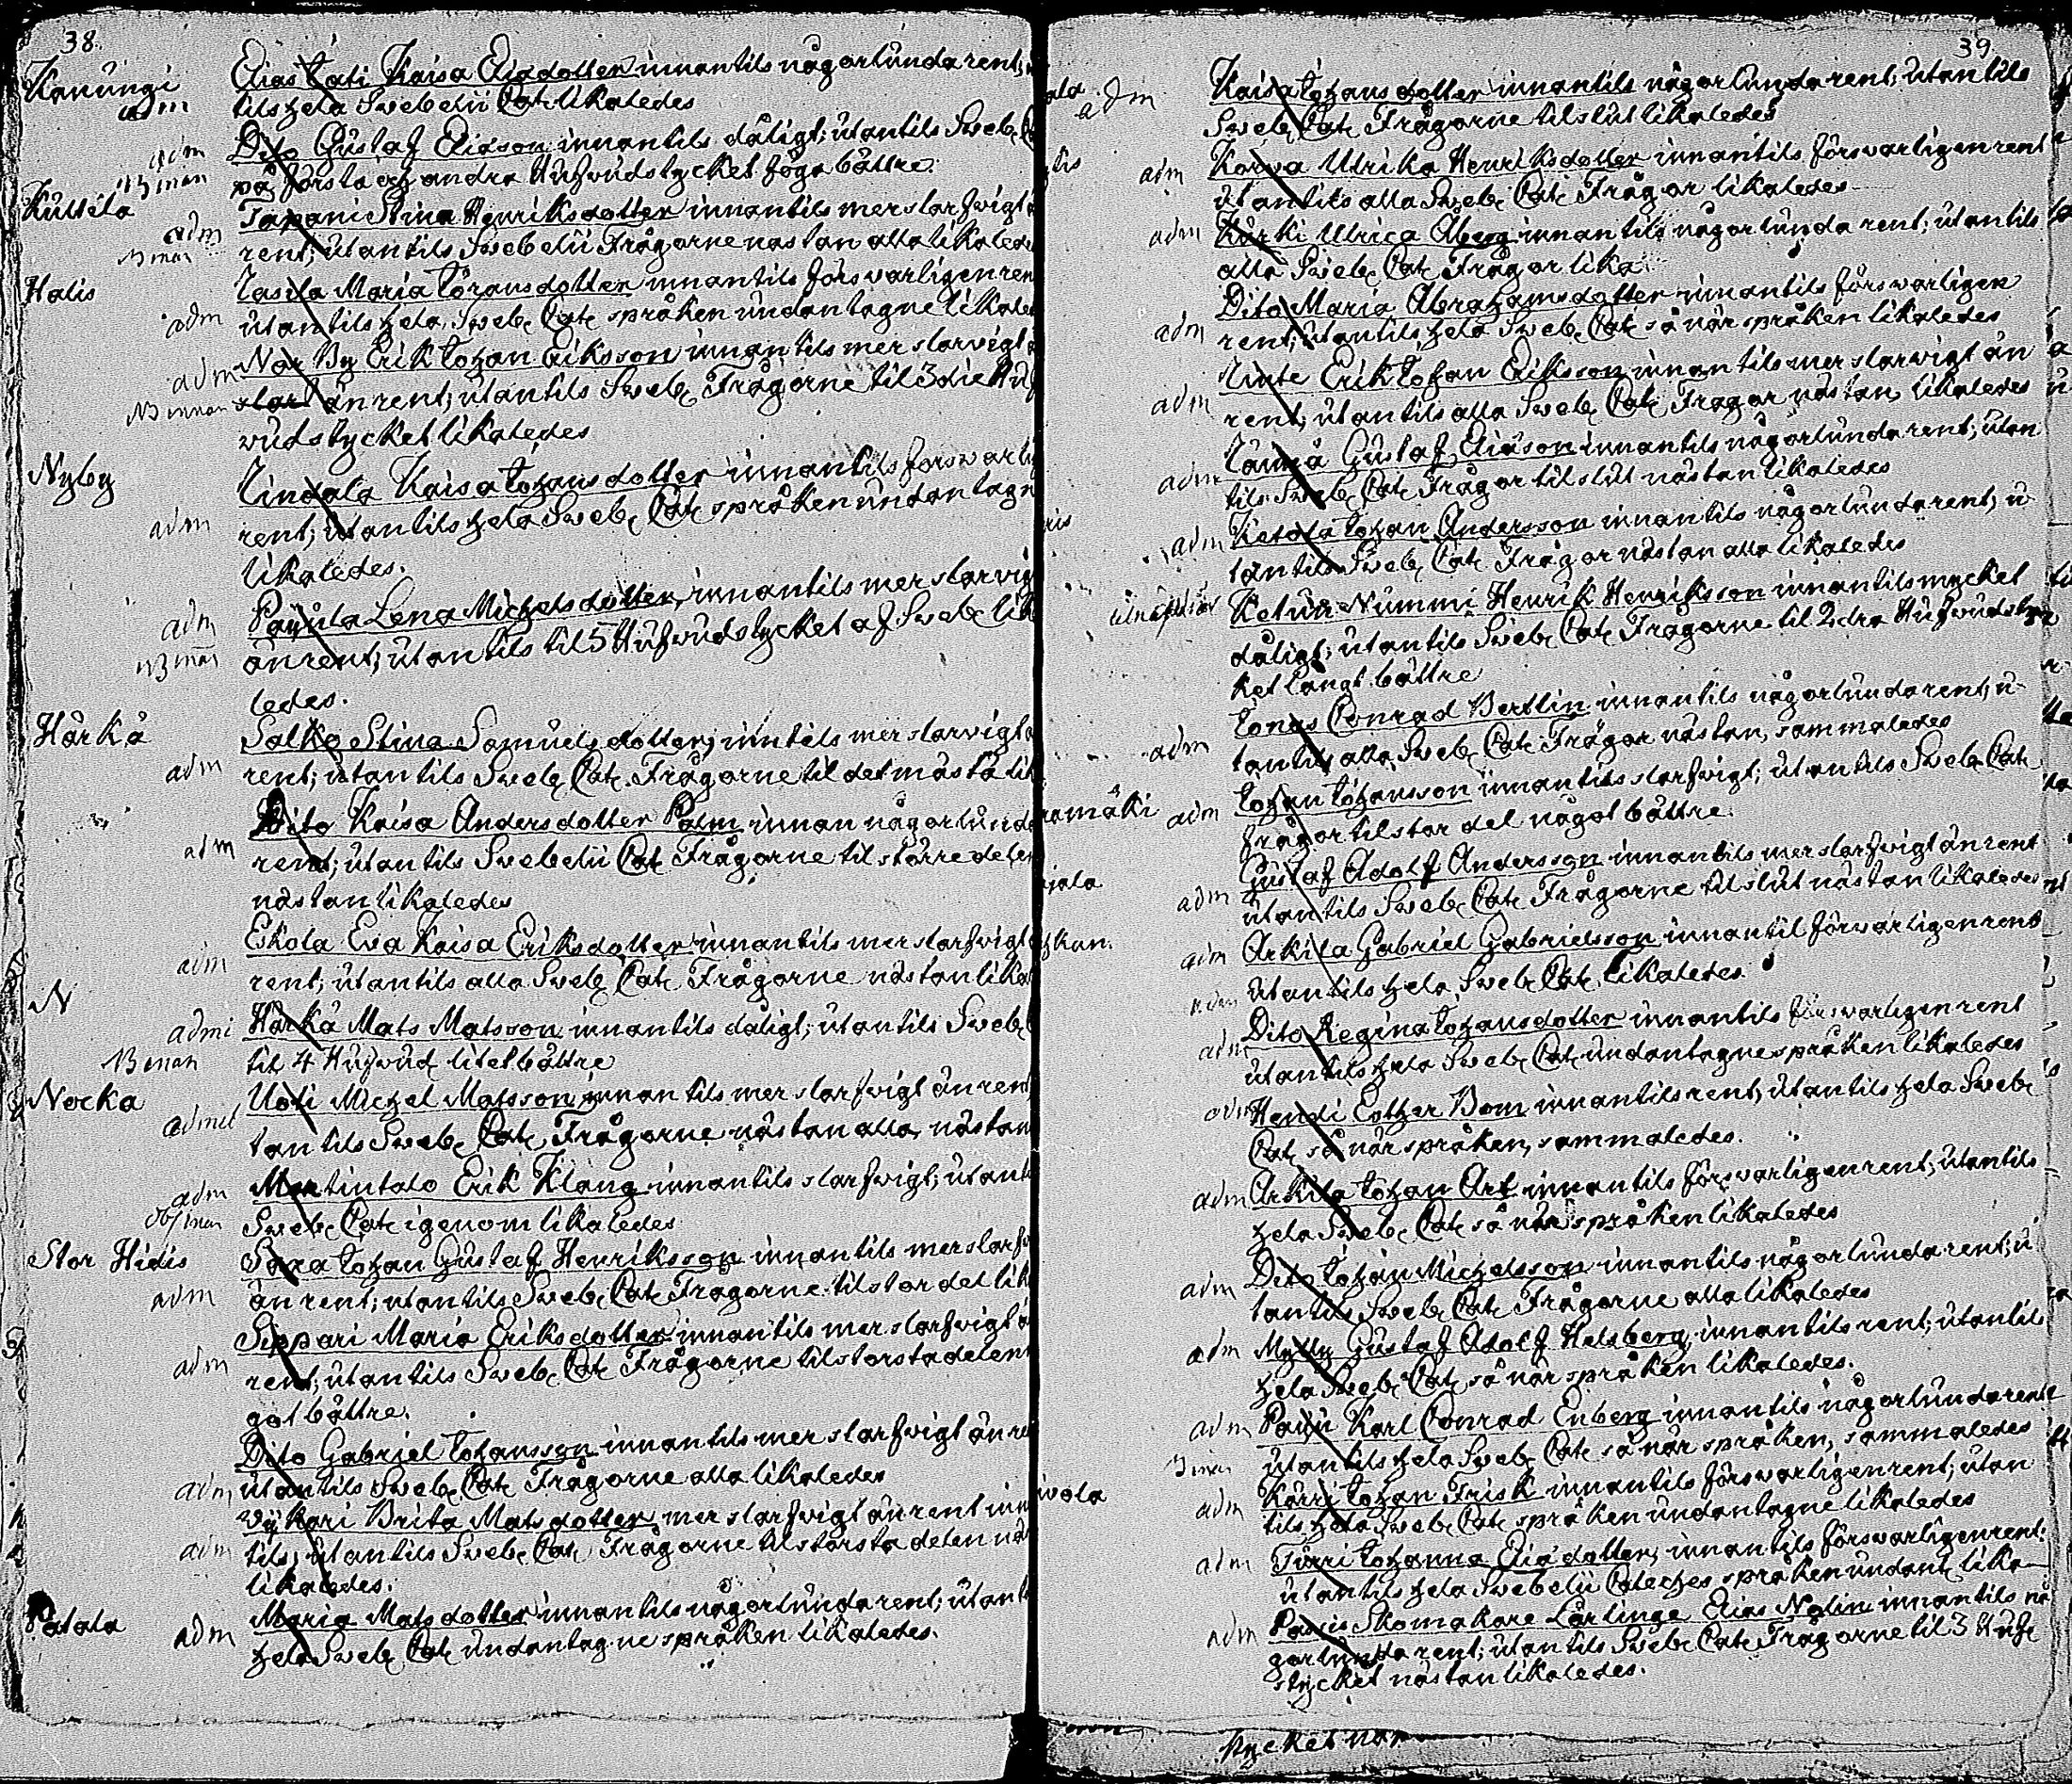 38
Kauungi Elias Lati Kaisa Eliædotter innantils någorlunda rent;
adm tils hela Swebelii Cat likaledes
adm Dito Gustaf Eliason innantils dåligt; utantils Sweb.
NB man på första och andra Hufwudstycket föga bättre.
Kuttila Tapani Stina Henriksdotter innantils mer slarfwigt
adm rent; utantils Swebelii Frågorne nästan alla likaledes
NB man
Halis Lasila Maria Johansdotter innantils försvarligen rent
adm utantils hela Sweb. Cat. språken undantagne likaledes
adm Når By Erik Johan Eriksson innantils mer slarvigt
NB innan slar än rent; utantils Sweb. Frågorne til 3die Huf
vudstycket likaledes
Nyby Lindala Kaisa Johansdotter innantils försvarli
adm rent; utantils hela Sweb. Cat. språken undantagn
likaledes.
adm Payula Lena Michelsdotter, innantils mer slarvig
NB man än rent; utantils til 5 Hufvudstycket af Sweb. lik
ledes.
Härkä Salko Stina Samuelsdotter, inntils mer slarvigt
adm rent; utantils Sweb. Cat. Frågorne til det mästa lik
Dito Kaisa Andersdotter Palm innan någorlunda
adm rent; utantils Swebelii Cat. Frågorne til större delen
nästan likaledes
Eskola Eva Kaisa Eriksdotter innantils mer slarfvigt
adm rent; utantils alla Sweb. Cat. Frågorne nästan lika
N
admi Härkä Mats Matsson innantils dåligt; utantils Sweb.
NB man til 4 Hufwud litet bättre
Nocka Uoti Michel Matsson innantils mer slarfvigt än rent
admit tantils Sweb. Cat. Frågorne nästan alla, nästan
adm Martintalo Erik Klang innantils slarfvigt; utant
Obs man Sweb. Cat. igenom likaledes
Stor Hidis Saxa Johan Gustaf Henriksson innantils mer slarf
adm än rent; utantils Sweb. Cat. Frågorne til stor del lik
Sippari Maria Eriksdotter innantils mer slarfvigt
adm rent; utantils Sweb. Cat. Frågorne til storsta delen
got bättre.
Dito Gabriel Johansson innantils mer slarfvigt än re
adm utantils Sweb. Cat. Frågorne alla likaledes
Vykari Brita Matsdotter mer slarfvigt än rent inn
adm tils; utantils Sweb. Cat. Frågorne til största delen nä
likaledes.
Patala Maria Matsdotter innantils någorlunda rent; utant
adm hela Sweb. Cat. undantagne språken likaledes.
39
adm Kaisa Johansdotter innantils någorlunda rent; utantils
Sweb. Cat. Frågorne til slut likaledes
adm Korva Ulrika Henriksdotter innantils försvarligen rent
utantils alla Sweb. Cat. Frågor likaledes
adm Kurki Ulrica Åberg innantils någorlunda rent; utantils
alla Sweb. Cat. Frågor lika
Dito Maria Abrahamsdotter innantils försvarligen
adm rent; utantils hela Sweb. Cat. så när språken likaledes
Erik Johan Eriksson innantils mer slarvigt än
adm rent; utantils alla Sweb. Cat. Frågor nästan likaledes
Gustaf Eliason innantils någorlunda rent; utan
adm tils Sweb. Cat. Frågor til slut nästan likaledes
adm Ketola Johan Andersson innantils någorlunda rent; u
tantils Sweb. Cat. Frågor nästan alla likaledes
Ketun Nummi Henrik Henriksson innantils mycket
dåligt; utantils Sweb. Cat. Frågorne til 2dra Hufwudstyc
ket långt bättre
Jonas Conrad Bertlin innantils någorlunda rent; u
adm tantils alla Sweb. Cat. Frågor nästan, sammaledes
adm Johan Johansson innantils slarfvigt; utantils Sweb. Cat.
frågor til stor del något bättre.
Gustaf Adolf Andersson innantils mer slarfvigt än rent
adm utantils Sweb. Cat. Frågorne til slut nästan likaledes
adm Arkila Gabriel Gabrielsson innantil försvarligen rent
adm utantils hela Sweb. Cat. likaledes.
Dito Regina Johansdotter innantils försvarligen rent
adm utantils hela Sweb. Cat. undantagne språken likaledes
adm Hendi Esther Bom innantils rent, utantils hela Sweb.
Cat. så när språken, sammaledes.
adm Arkila Johan Ark innantils försvarligen rent; utantils
hela Sweb. Cat. så när språken likaledes
Dito Johan Michelsson innantils någorlunda rent; u
adm tantils Sweb. Cat. Frågorne alla likaledes
adm Mylly Gustaf Adolf Helsberg innantils rent; utantils
hela Sweb. Cat. så när språken likaledes.
adm Pavu Karl Conrad Enberg innantils någorlunda rent
utantils hela Sweb. Cat. så när språken, sammaledes
adm Kärri Johan Frisk innantils försvarligen rent; utan
tils hela Sweb. Cat. språken undantagne likaledes
adm Turri Johanna Eliædotter, innantils försvarligen rent;
utantils hela Swebelii Cateches språken undant. lika
adm Passis Skomakare Lärlinge Elias Nolin innantils nå
gorlunda rent; utantils Sweb. Cat. Frågorne til 3 Huf.
stycket nästan likaledes.
stycket när